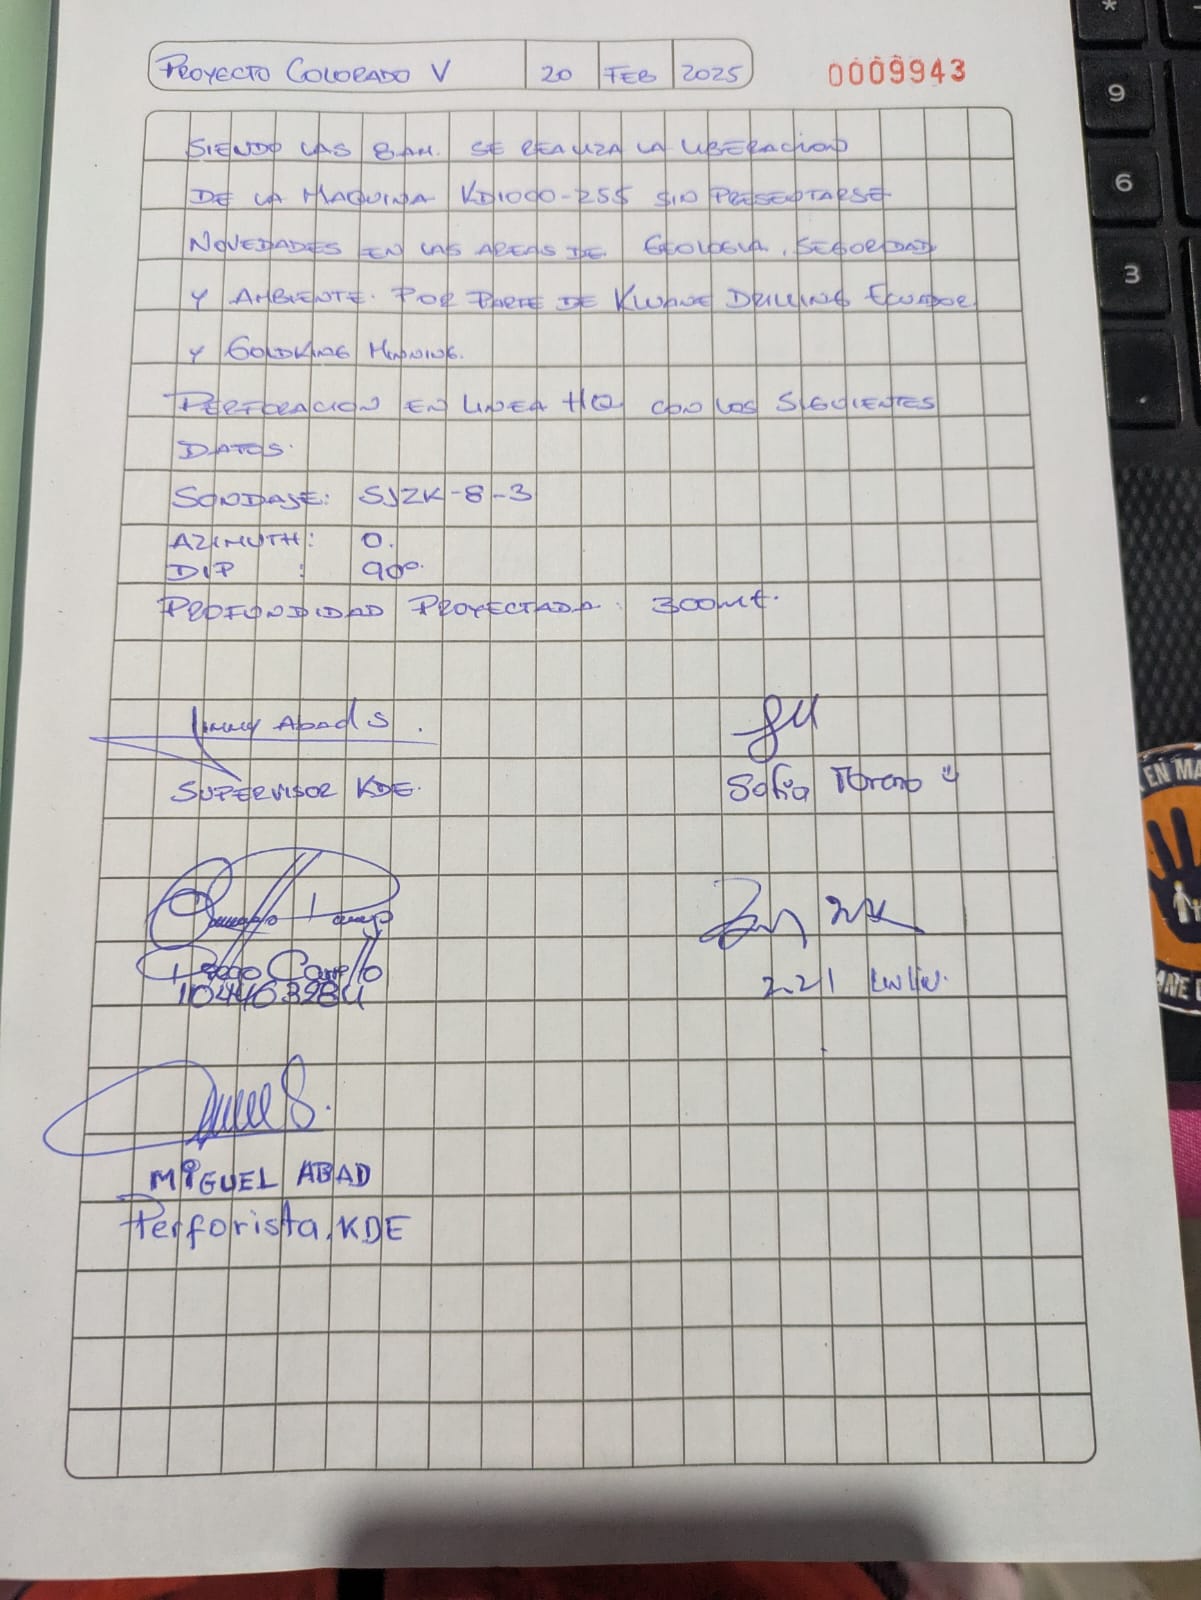 PROYECTO COLORADO V 20 FEB 2025 0009943
SIENDO LAS 8AM. SE REALIZA LA LIBERACION
DE LA MAQUINA KD1000-255 SIN PRESENTARSE
NOVEDADES EN LAS AREAS DE GEOLOGIA, SEGURIDAD
Y AMBIENTE. POR PARTE DE KLUANE DRILLING ECUADOR
Y GOLDKING MINNING.
PERFORACION EN LINEA HQ CON LOS SIGUIENTES
DATOS.
SONDAJE: SJZK-8-3
AZIMUTH: 0.
DIP : 90°.
PROFUNDIDAD PROYECTADA: 300mt.
Jimmy Abad S.
SUPERVISOR KDE.
Sofia Moreno
Diego Carrillo
1104463984
MIGUEL ABAD
Perforista. KDE
*
9
6
3
.
EN MA